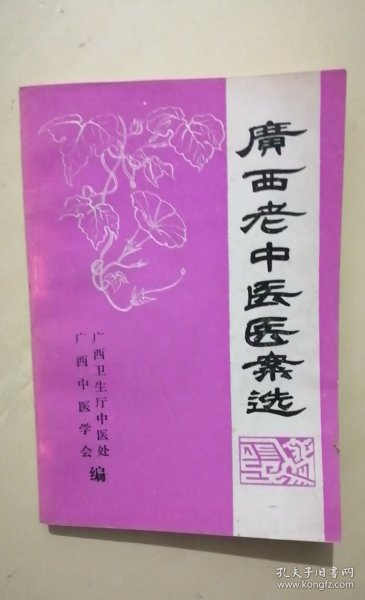 廣西老中医医案选
广西卫生厅中医处
广西中医学会
编
孔夫子旧书网
kongfz.com